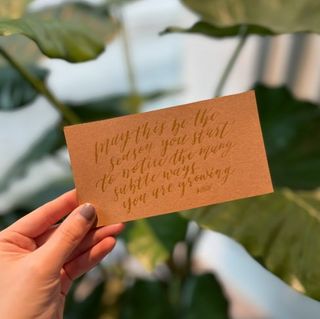 May this be the
season you start
to notice the many
subtle ways
you are growing.